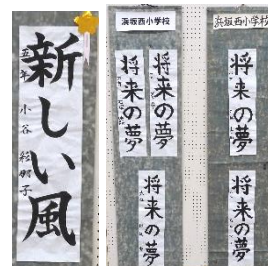 新しい風
五年 小谷 彩那子
浜坂西小学校
将来の夢
将来の夢
将来の夢
浜坂西小学校
将来の夢
将来の夢